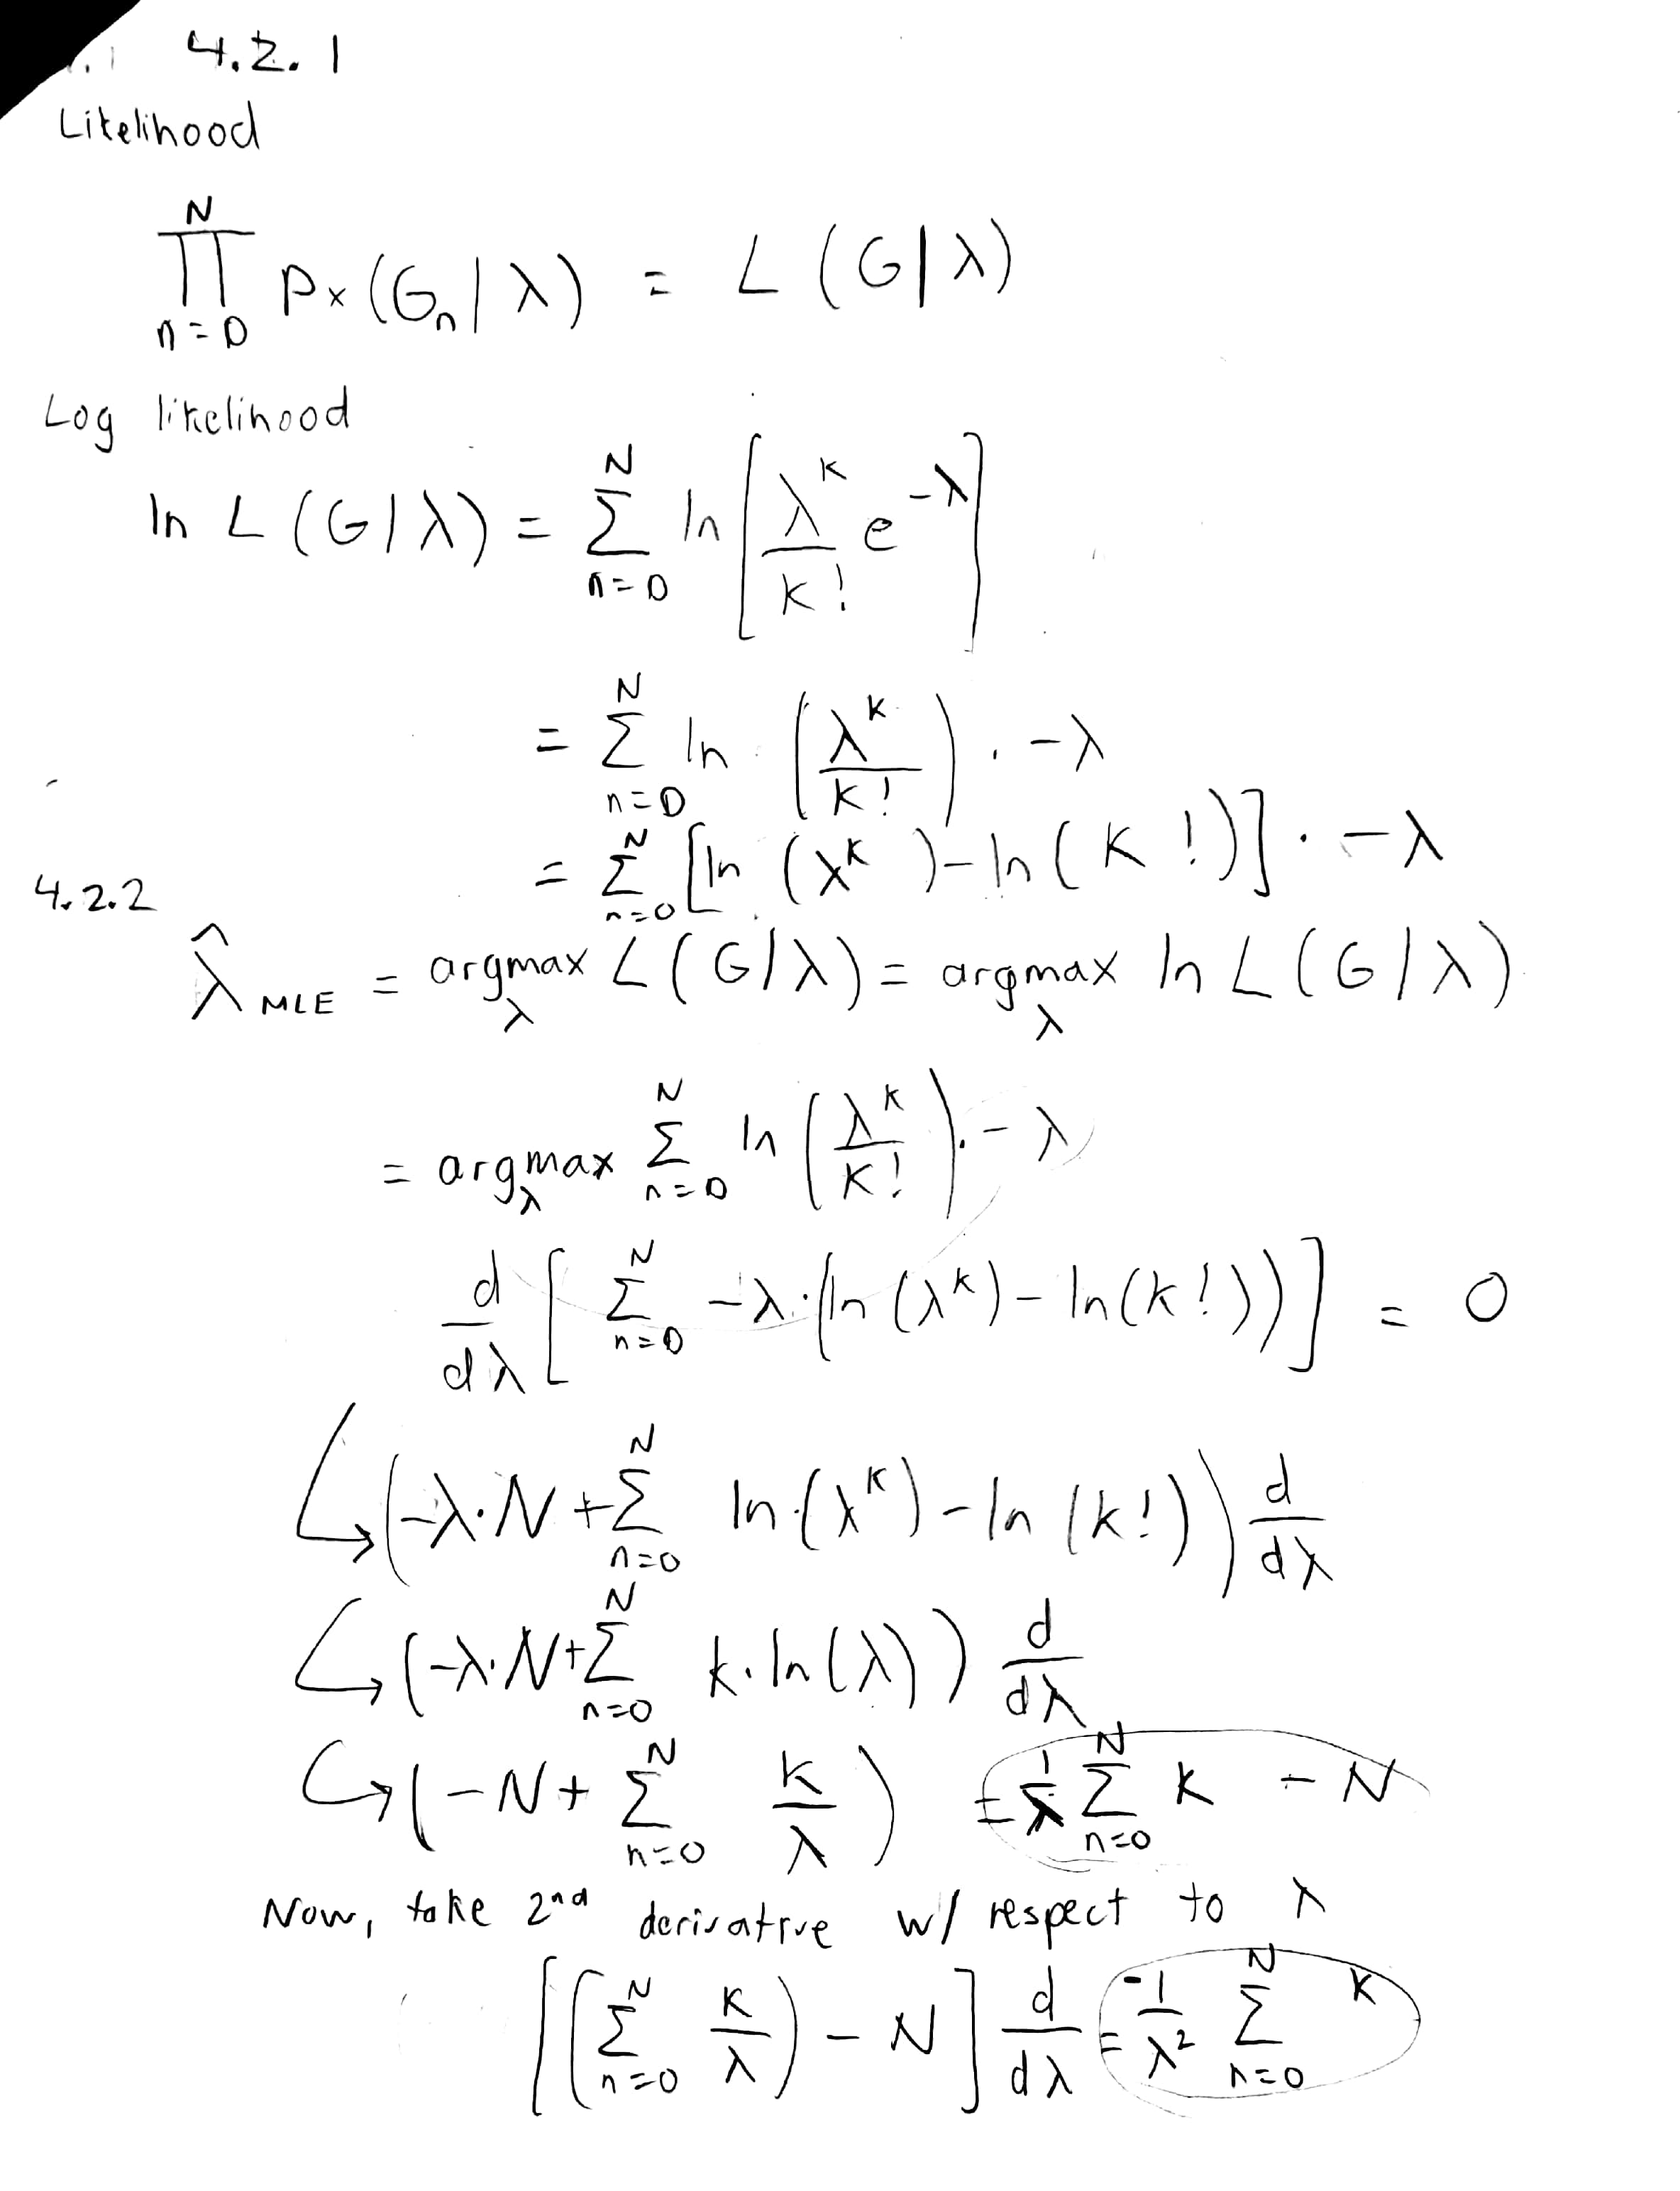 4.2.1
Likelihood
∏_{n=0}^{N} P_x(G_n | λ) = L(G|λ)
Log likelihood
ln L(G|λ) = ∑_{n=0}^{N} ln [ λ^k/k! e^{-λ} ]
= ∑_{n=0}^{N} ln (λ^k/k!) · -λ
= ∑_{n=0}^{N} [ln (λ^k) - ln(k!)] · -λ
4.2.2
λ̂_{MLE} = argmax_λ L(G|λ) = argmax_λ ln L(G|λ)
= argmax_λ ∑_{n=0}^{N} ln (λ^k/k!) · -λ
d/dλ [ ∑_{n=0}^{N} -λ·(ln(λ^k) - ln(k!)) ] = 0
↳ (-λ·N + ∑_{n=0}^{N} ln·(λ^k) - ln(k!)) d/dλ
↳ (-λ·N + ∑_{n=0}^{N} k·ln(λ)) d/dλ
↳ (-N + ∑_{n=0}^{N} k/λ) = 1/λ ∑_{n=0}^{N} k - N
Now, take 2nd derivative w/ respect to λ
[(∑_{n=0}^{N} k/λ) - N] d/dλ = -1/λ² ∑_{n=0}^{N} k